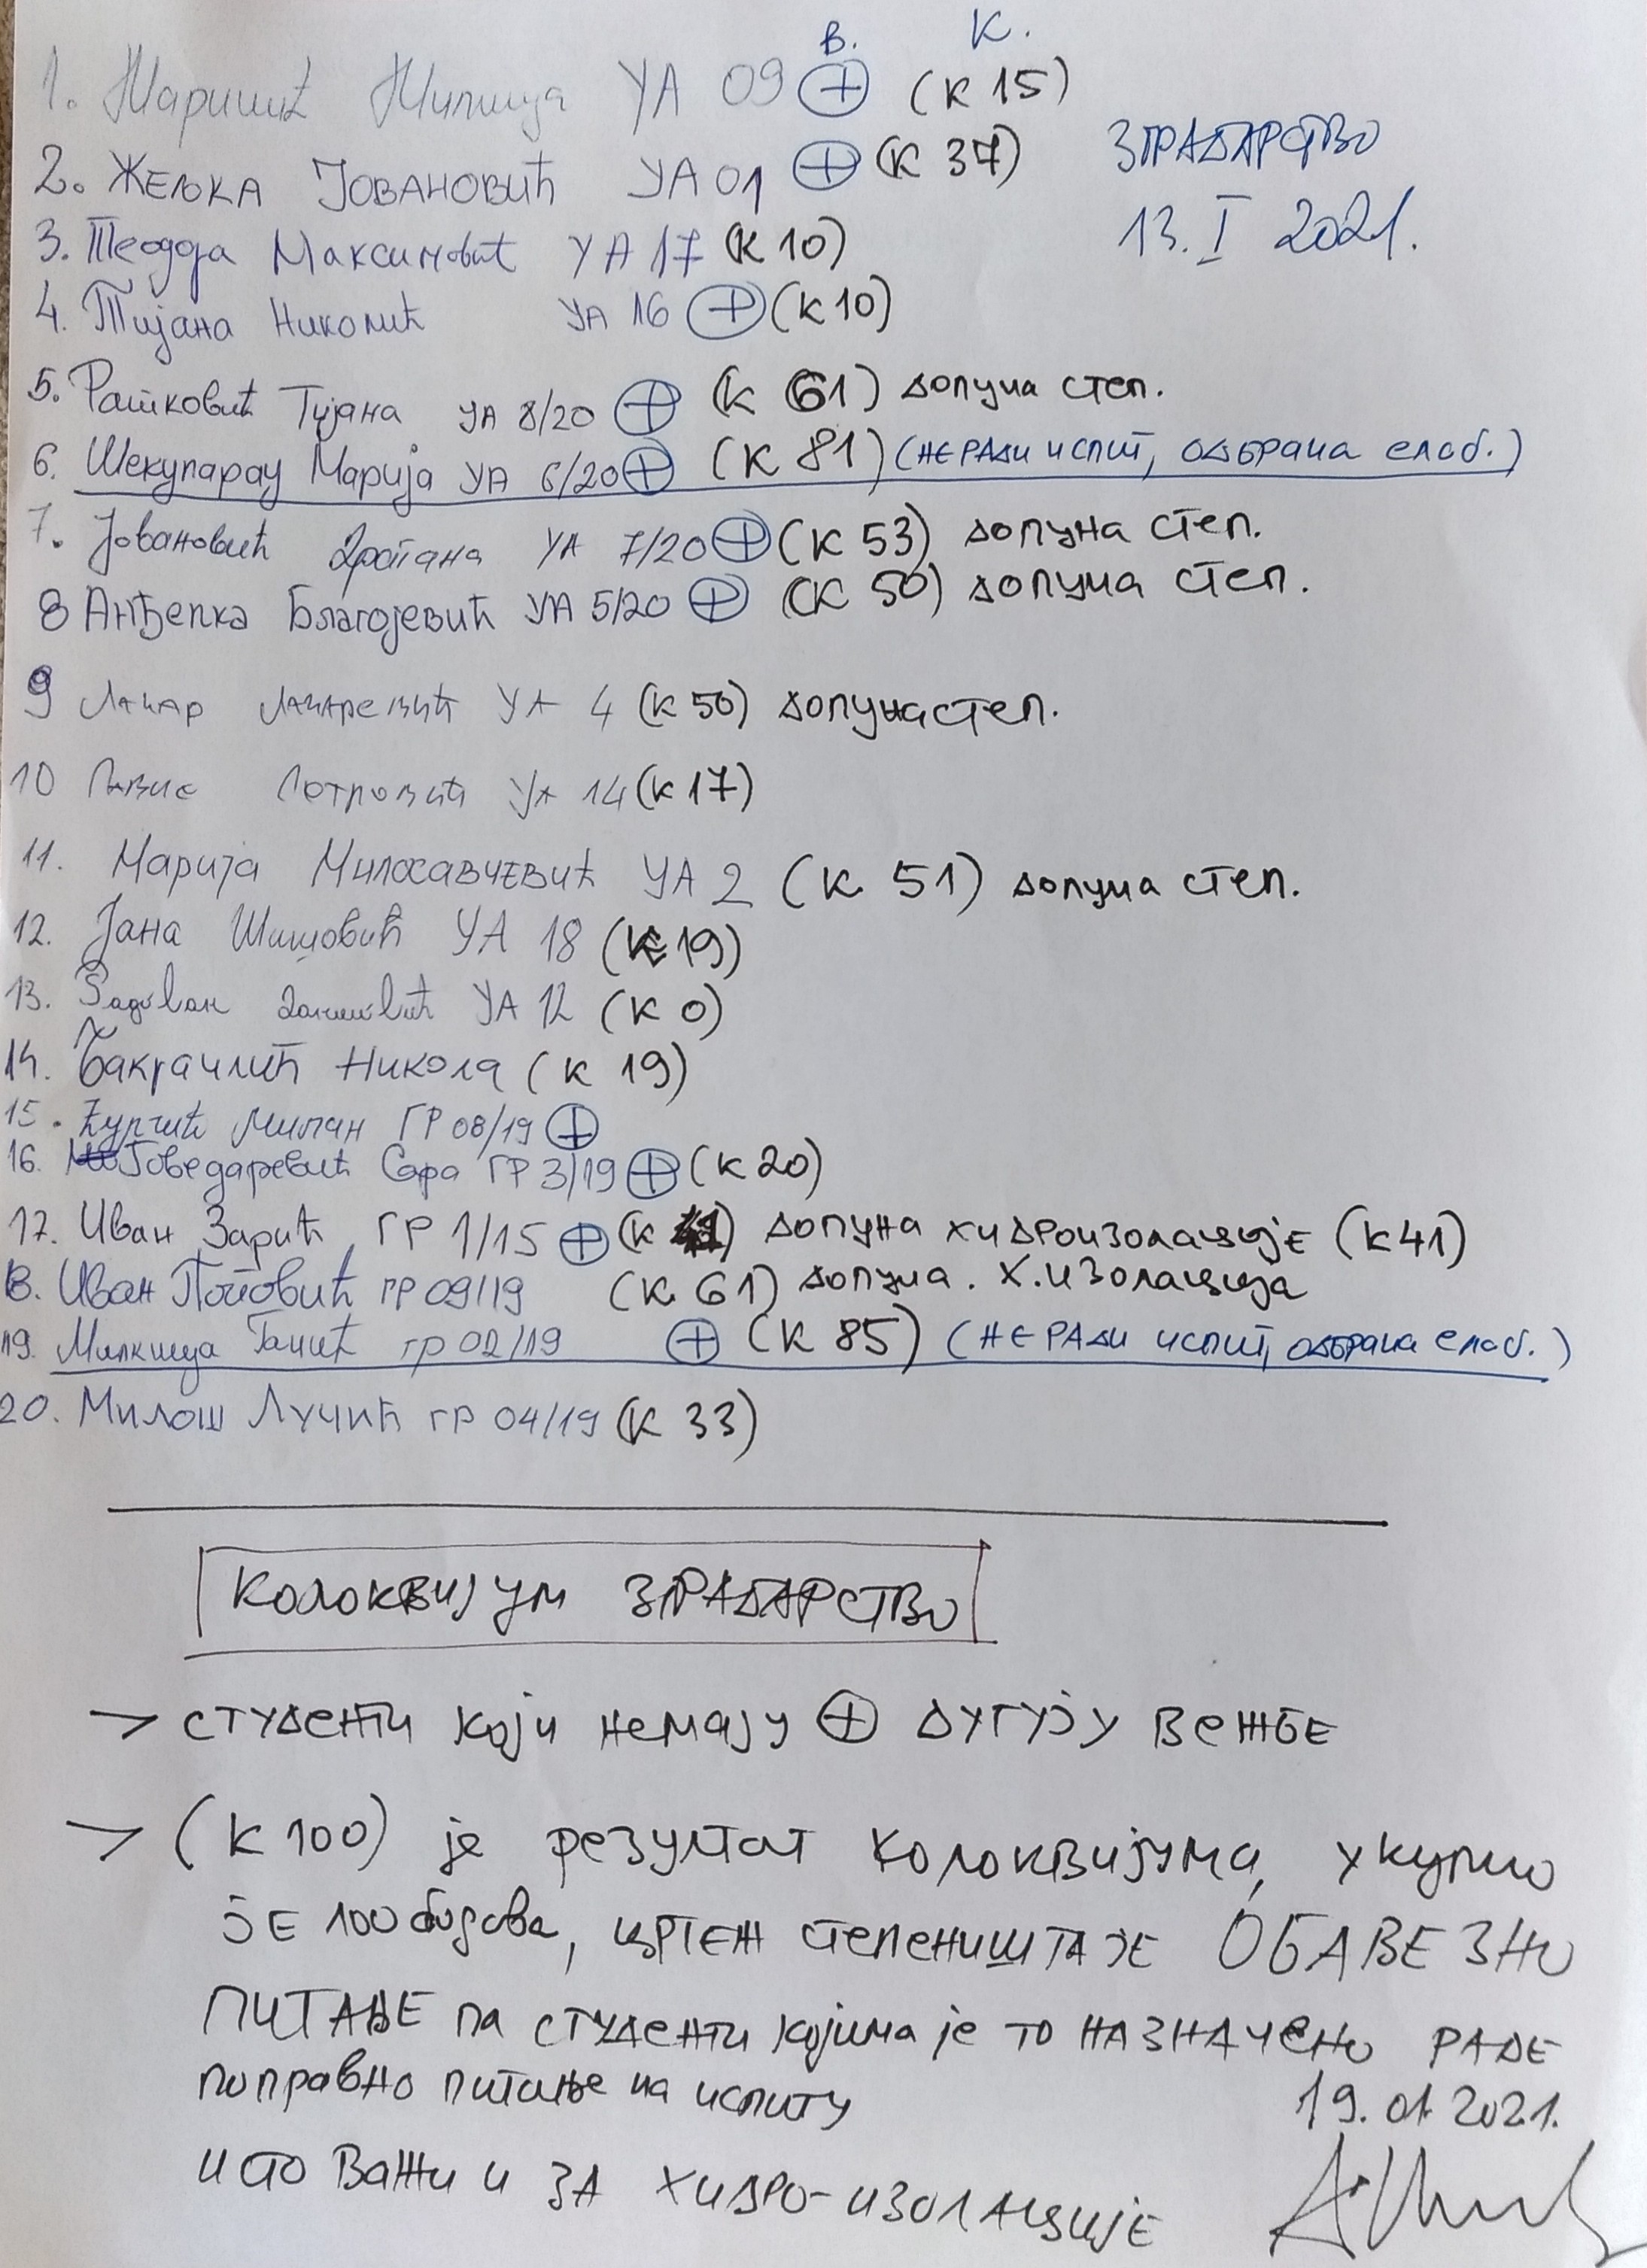 В. К.
1. Маринић Милица УА 09 ⊕ (К 15)
2. ЖЕЉКА ЈОВАНОВИЋ УА 01 ⊕ (К 37)
ЗГРАДАРСТВО
13. I 2021.
3. Теодора Максимовић УА 17 (К 10)
4. Тијана Николић УА 16 ⊕ (К 10)
5. Рашковић Тијана УА 8/20 ⊕ (К 61) допуна степ.
6. Шекуларац Марија УА 6/20 ⊕ (К 81) (НЕ РАДИ ИСПИТ, ОДБРАНА елаб.)
7. Јовановић Драгана УА 7/20 ⊕ (К 53) допуна степ.
8 Анђелка Благојевић УА 5/20 ⊕ (К 50) допуна степ.
9 Лазар Лазаревић УА 4 (К 50) допуна степ.
10 Петровић УА 14 (К 17)
11. Марија Милосављевић УА 2 (К 51) допуна степ.
12. Јана УА 18 (К 19)
13. Радован УА 12 (К 0)
14. Бакрачлић Никола (К 19)
15. Ћурчић Милан ГР 08/19 ⊕
16. Говедаревић Сара ГР 3/19 ⊕ (К 20)
17. Иван Зарић ГР 1/15 ⊕ (К 41) допуна хидроизолације (К 41)
18. Иван Поповић ГР 09/19 (К 61) допуна. Х. изолација
19. Милкица ГР 02/19 ⊕ (К 85) (НЕ РАДИ ИСПИТ, ОДБРАНА елаб.)
20. Милош Лучић ГР 04/19 (К 33)
КОЛОКВИЈУМ ЗГРАДАРСТВО
> студенти који немају ⊕ дугују вежбе
> (К 100) је резултат колоквијума, укупно
је 100 бодова, цртеж степеништа је ОБАВЕЗНО
ПИТАЊЕ па студенти којима је то назначено раде
поправно питање на испиту
19.01.2021.
исто важи и за хидро-изолације